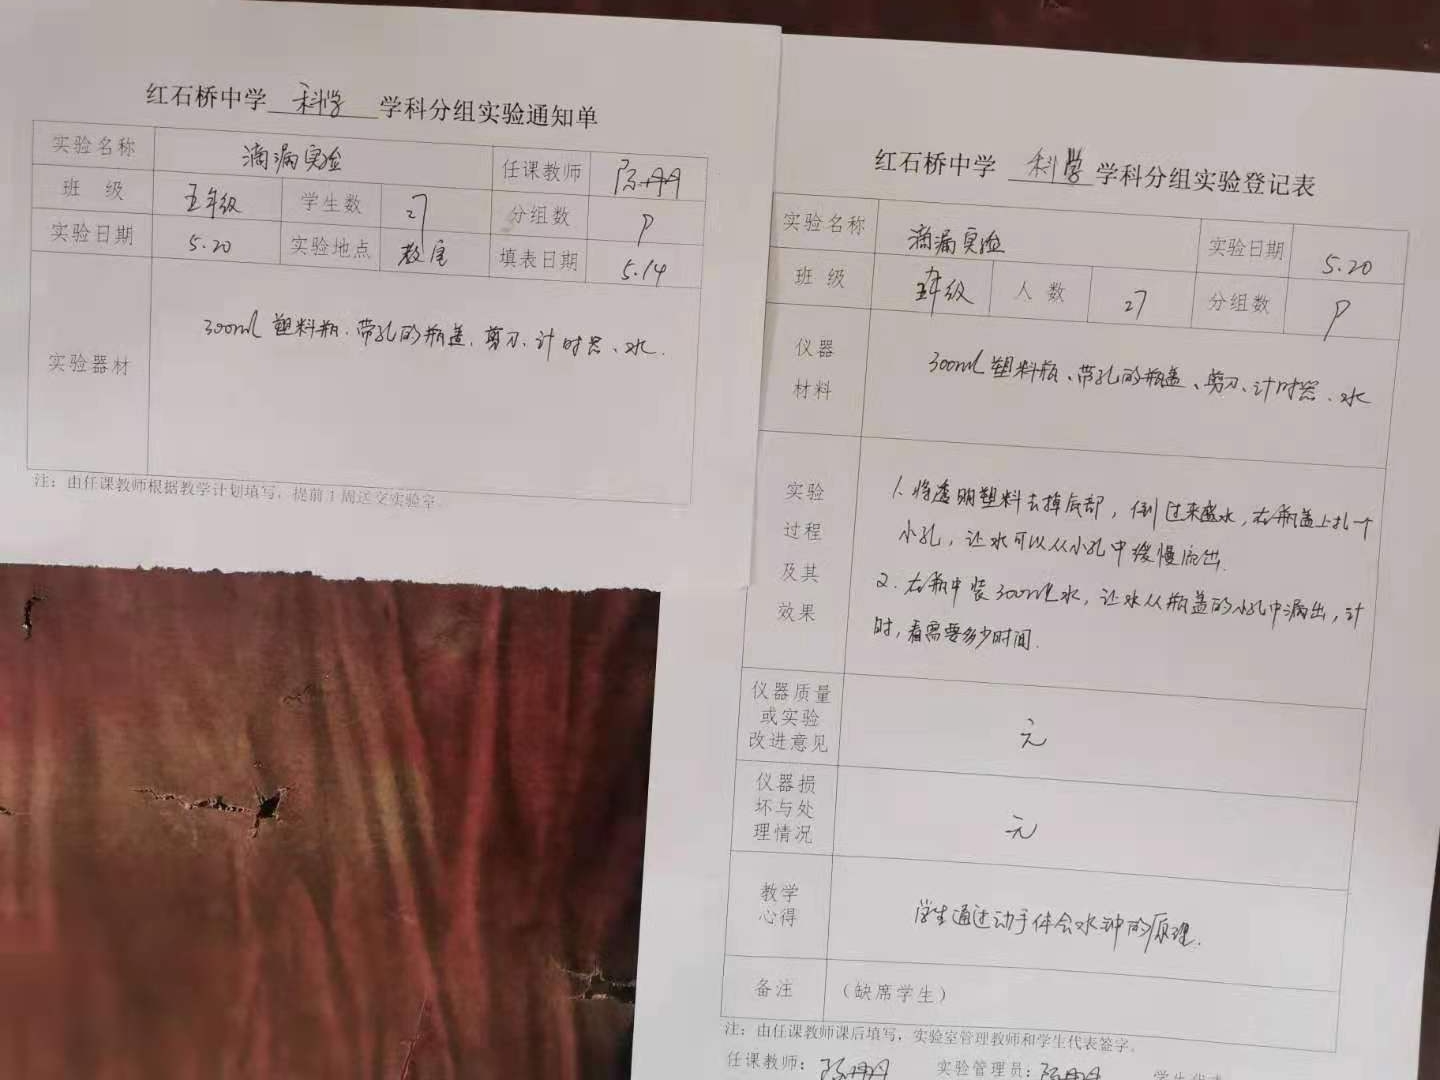 红石桥中学 科学 学科分组实验通知单
实验名称 滴漏实验 任课教师 陈丹丹
班 级 五年级 学生数 27 分组数 P
实验日期 5.20 实验地点 教室 填表日期 5.14
实验器材 300ml 塑料瓶、带孔的瓶盖、剪刀、计时器、水.
注：由任课教师根据教学计划填写，提前1周送交实验室。
红石桥中学 科学 学科分组实验登记表
实验名称 滴漏实验 实验日期 5.20
班 级 五年级 人 数 27 分组数 P
仪器
材料
300ml 塑料瓶、带孔的瓶盖、剪刀、计时器、水
实验
过程
及其
效果
1. 将透明塑料去掉底部，倒过来盛水，在瓶盖上扎一个
小孔，让水可以从小孔中缓慢流出.
2. 在瓶中装300ml水，让水从瓶盖的小孔中漏出，计
时，看需要多少时间.
仪器质量
或实验
改进意见
无
仪器损
坏与处
理情况
无
教学
心得
学生通过动手体会水钟的原理.
备注 （缺席学生）
注：由任课教师课后填写，实验室管理教师和学生代表签字。
任课教师：陈丹丹 实验管理员：陈丹丹 学生代表